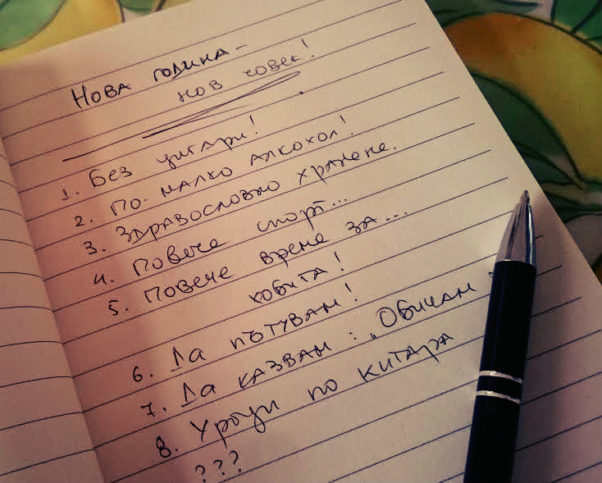 Нова година –
нов човек!
1. Без цигари!
2. По-малко алкохол!
3. Здравословно хранене.
4. Повече спорт...
5. Повече време за...
хобита!
6. Да пътувам!
7. Да казвам: „Обичам
8. Уроци по китара
???